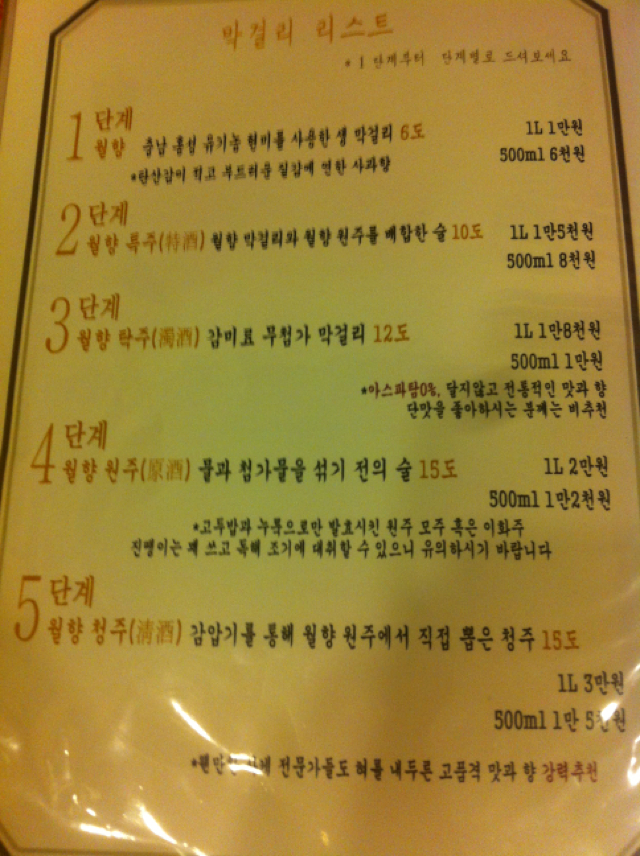 막걸리 리스트
*1단계부터 단계별로 드셔보세요
1 단계
월향 충남 홍성 유기농 현미를 사용한 생 막걸리 6도 1L 1만원
500ml 6천원
*탄산감이 적고 부드러운 질감에 연한 사과향
2 단계
월향 특주(特酒) 월향 막걸리와 월향 원주를 배합한 술 10도 1L 1만5천원
500ml 8천원
3 단계
월향 탁주(濁酒) 감미료 무첨가 막걸리 12도 1L 1만8천원
500ml 1만원
*아스파탐0%, 달지않고 전통적인 맛과 향
단맛을 좋아하시는 분께는 비추천
4 단계
월향 원주(原酒) 물과 첨가물을 섞기 전의 술 15도 1L 2만원
500ml 1만2천원
*고두밥과 누룩으로만 발효시킨 원주 모주 혹은 이화주
진땡이는 꽤 쓰고 독해 조기에 대취할 수 있으니 유의하시기 바랍니다
5 단계
월향 청주(淸酒) 감압기를 통해 월향 원주에서 직접 뽑은 청주 15도
1L 3만원
500ml 1만 5천원
전문가들도 혀를 내두른 고품격 맛과 향 강력추천